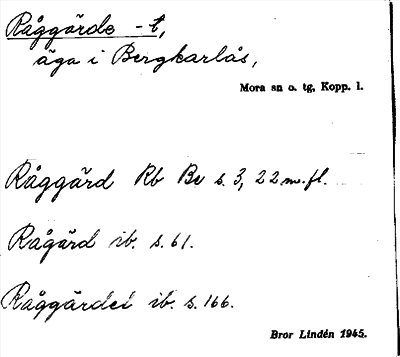 Råggärde -t,
äga i Bergkarlås,
Mora sn o. tg, Kopp. l.
Råggärd Rb Bv s. 3, 22 m.fl.
Rågård ib. s. 61.
Råggärdet ib. s. 166.
Bror Lindén 1945.